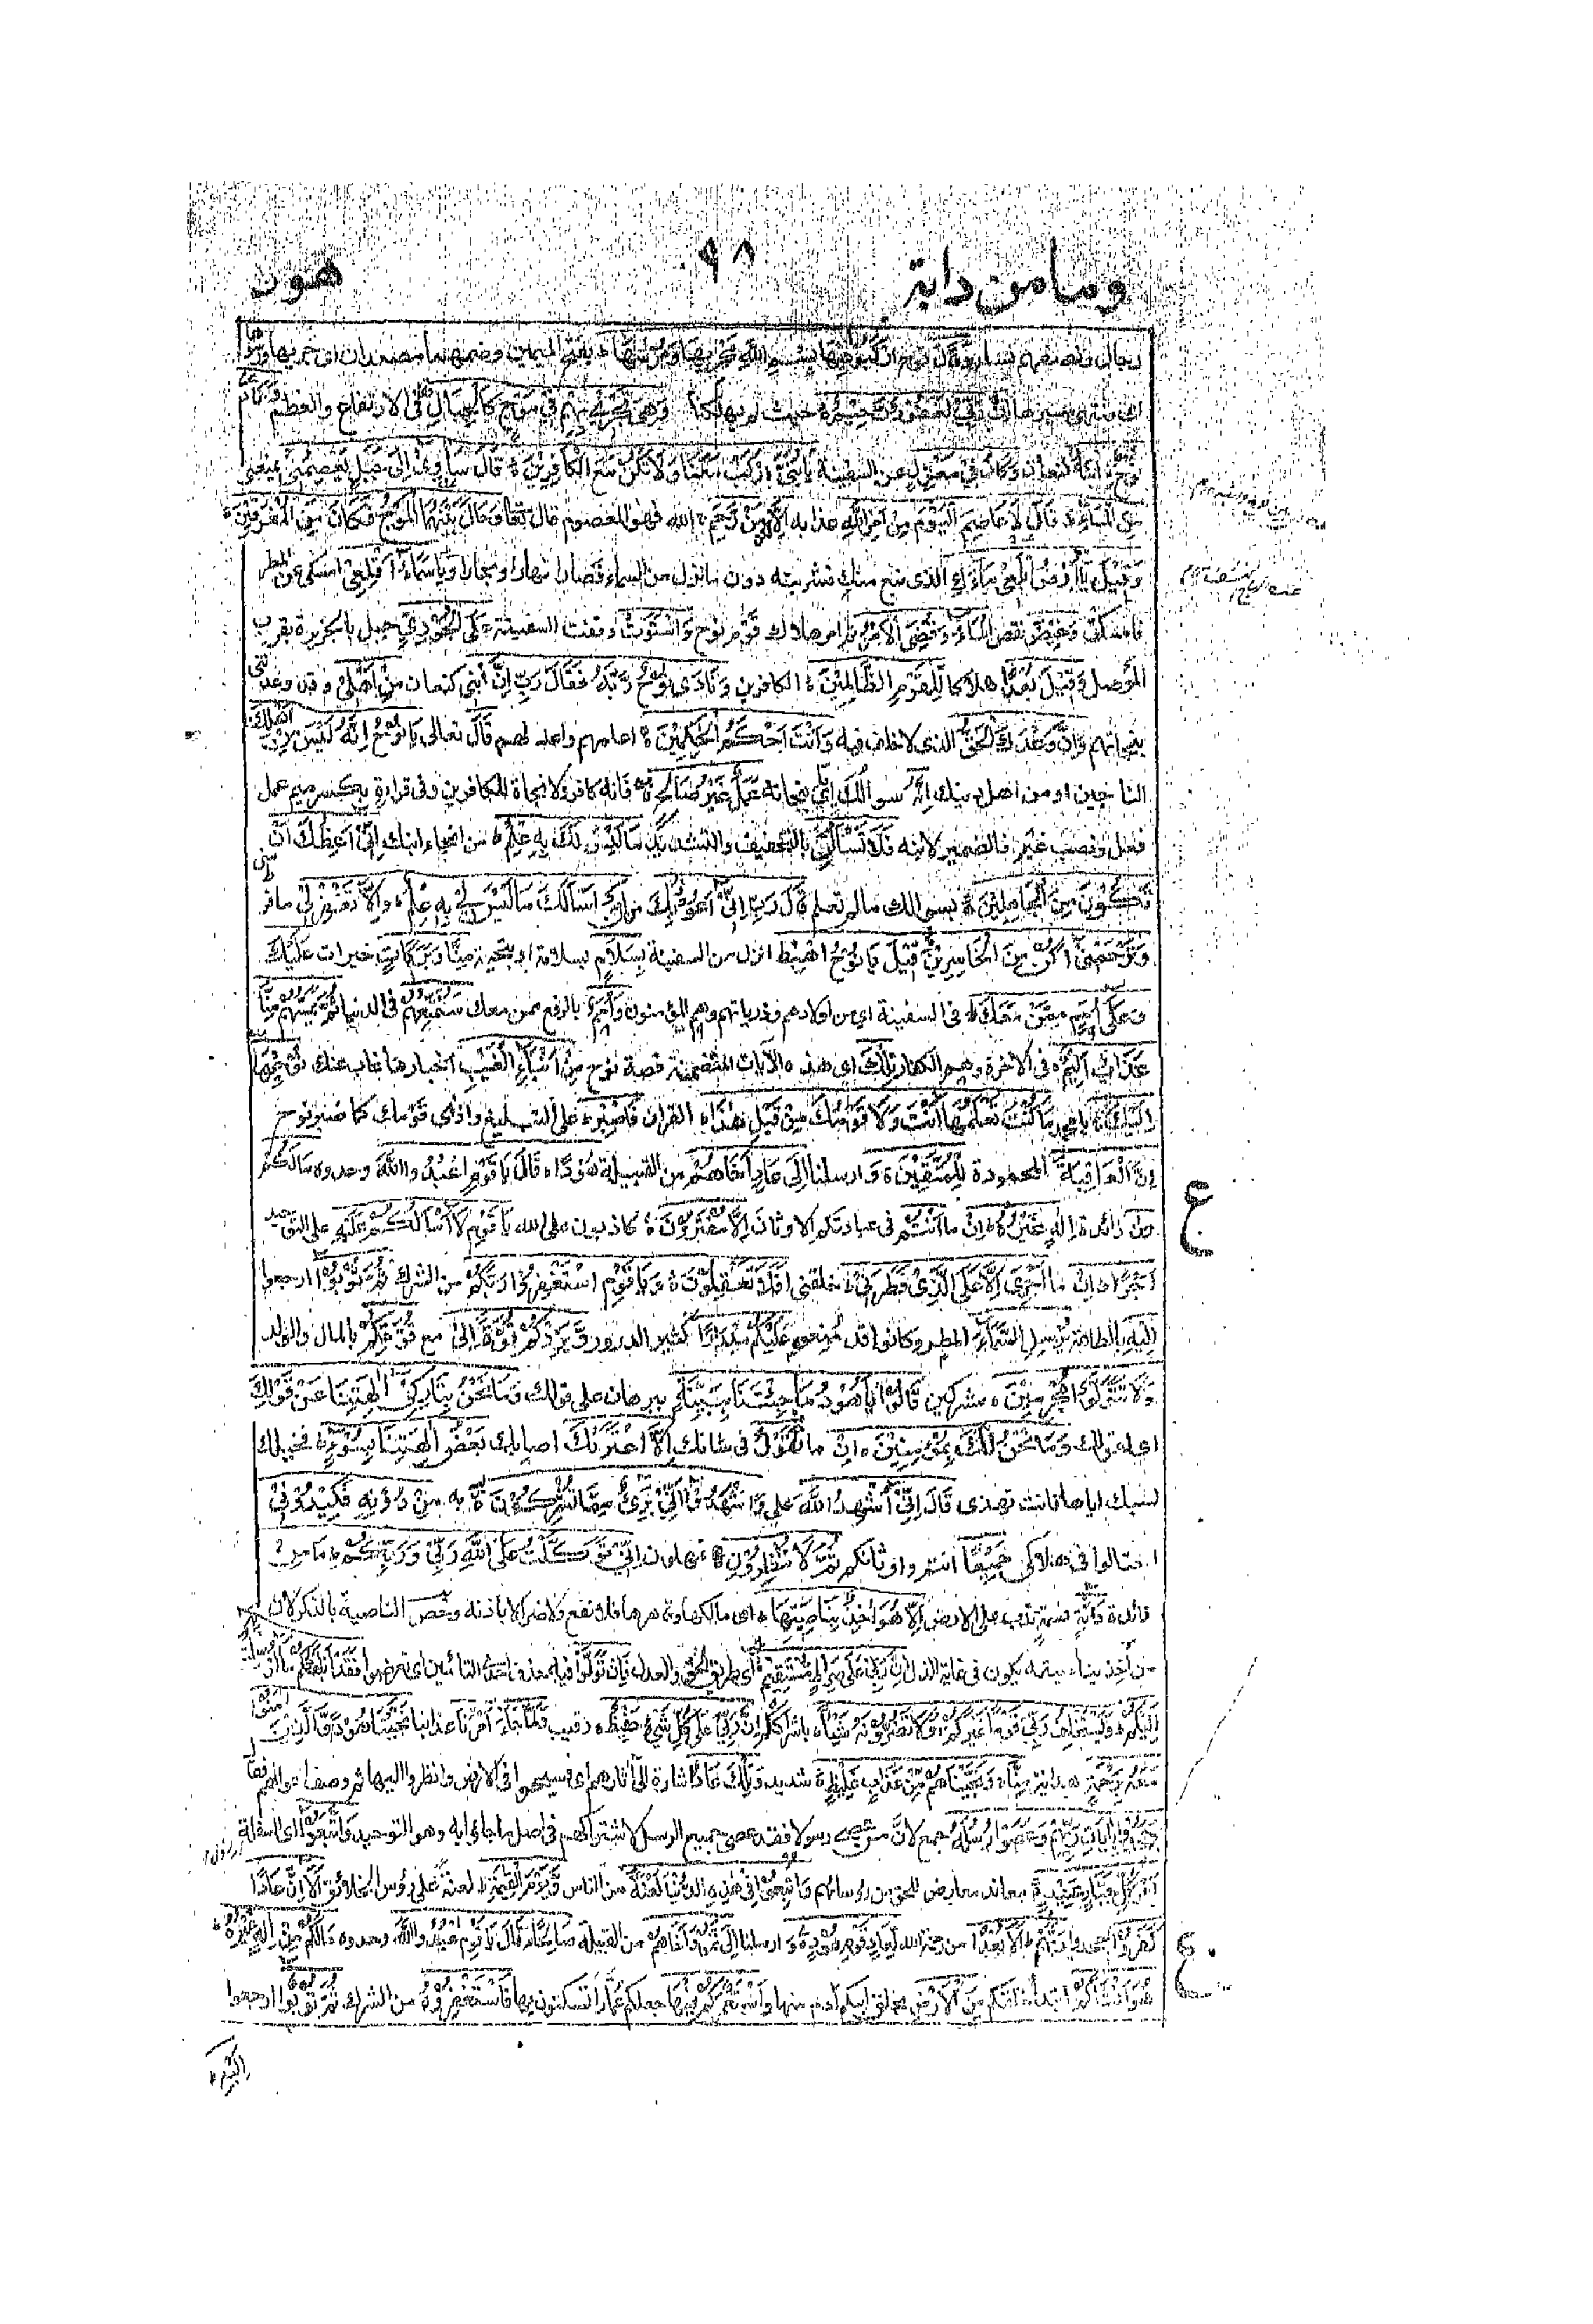 وما من دابة
٩٨
هود
رجال ونصفهم نساء وَقَالَ نوح ارْكَبُوْا فِيْهَا بِسْمِ اللّٰهِ مَجْرٖىهَا وَمُرْسٰىهَا بفتح الميمين وضمهما مصدران اى جريها ورسوها
اى منتهى سيرها اِنَّ رَبِّيْ لَغَفُوْرٌ رَّحِيْمٌ حيث لم يهلكنا وَهِيَ تَجْرِيْ بِهِمْ فِيْ مَوْجٍ كَالْجِبَالِ فى الارتفاع والعظم وَنَادٰى
نُوْحُ ابْنَهٗ كنعان وَكَانَ فِيْ مَعْزِلٍ عن السفينة يَا بُنَيَّ ارْكَبْ مَعَنَا وَلَا تَكُنْ مَعَ الْكَافِرِيْنَ قَالَ سَاٰوِيْ اِلٰى جَبَلٍ يَعْصِمُنِيْ يمنعنى
مِنَ الْمَاءِ قَالَ لَا عَاصِمَ الْيَوْمَ مِنْ اَمْرِ اللّٰهِ عذابه اِلَّا مَنْ رَّحِمَ الله فهو المعصوم قال تعالى وَحَالَ بَيْنَهُمَا الْمَوْجُ فَكَانَ مِنَ الْمُغْرَقِيْنَ
وَقِيْلَ يَا اَرْضُ ابْلَعِيْ مَاءَكِ الذى نبع منك فشربته دون ما نزل من السماء فصار انهارا وبحارا وَيَا سَمَاءُ اَقْلِعِيْ امسكى عن المطر
فامسكت وَغِيْضَ نقص الْمَاءُ وَقُضِيَ الْاَمْرُ تم امر هلاك قوم نوح وَاسْتَوَتْ وقفت السفينة عَلَى الْجُوْدِيِّ جبل بالجزيرة بقرب
الموصل وَقِيْلَ بُعْدًا هلاكا لِّلْقَوْمِ الظَّالِمِيْنَ الكافرين وَنَادٰى نُوْحٌ رَّبَّهٗ فَقَالَ رَبِّ اِنَّ ابْنِيْ كنعان مِنْ اَهْلِيْ وقد وعدتنى
بنجاتهم وَاِنَّ وَعْدَكَ الْحَقُّ الذى لا خلف فيه وَاَنْتَ اَحْكَمُ الْحٰكِمِيْنَ اعلمهم واعدلهم قَالَ تعالى يَا نُوْحُ اِنَّهٗ لَيْسَ مِنْ اَهْلِكَ
الناجين او من اهل دينك اِنَّهٗ سوالك اياى بنجاته عَمَلٌ غَيْرُ صَالِحٍ فانه كافر ولا نجاة للكافرين وفى قراءة بكسر ميم عمل
فعل ونصب غير فالضمير لابنه فَلَا تَسْاَلْنِ بالتخفيف والتشديد مَا لَيْسَ لَكَ بِهٖ عِلْمٌ من انجاء ابنك اِنِّيْ اَعِظُكَ اَنْ
تَكُوْنَ مِنَ الْجَاهِلِيْنَ بسوالك ما لم تعلم قَالَ رَبِّ اِنِّيْ اَعُوْذُ بِكَ من اَنْ اَسْاَلَكَ مَا لَيْسَ لِيْ بِهٖ عِلْمٌ وَاِلَّا تَغْفِرْ لِيْ ما فرط منى
وَتَرْحَمْنِيْ اَكُنْ مِنَ الْخَاسِرِيْنَ قِيْلَ يَا نُوْحُ اهْبِطْ انزل من السفينة بِسَلَامٍ بسلامة او بتحية مِنَّا وَبَرَكَاتٍ خيرات عَلَيْكَ
وَعَلٰى اُمَمٍ مِمَّنْ مَعَكَ فى السفينة اى من اولادهم وذرياتهم وهم المؤمنون وَاُمَمٌ بالرفع ممن معك سَنُمَتِّعُهُمْ فى الدنيا ثُمَّ يَمَسُّهُمْ مِنَّا
عَذَابٌ اَلِيْمٌ فى الاخرة وهم الكفار تِلْكَ اى هذه الآيات المتضمنة قصة نوح مِنْ اَنْبَاءِ الْغَيْبِ اخبار ما غاب عنك نُوْحِيْهَا
اِلَيْكَ يا محمد مَا كُنْتَ تَعْلَمُهَا اَنْتَ وَلَا قَوْمُكَ مِنْ قَبْلِ هٰذَا القران فَاصْبِرْ على التبليغ واذى قومك كما صبر نوح
اِنَّ الْعَاقِبَةَ المحمودة لِلْمُتَّقِيْنَ وَ ارسلنا اِلٰى عَادٍ اَخَاهُمْ من القبيلة هُوْدًا قَالَ يَا قَوْمِ اعْبُدُوا اللّٰهَ وحدوه مَا لَكُمْ
مِنْ زائدة اِلٰهٍ غَيْرُهٗ اِنْ ما اَنْتُمْ فى عبادتكم الاوثان اِلَّا مُفْتَرُوْنَ كاذبون على الله يَا قَوْمِ لَا اَسْاَلُكُمْ عَلَيْهِ على التوحيد
اَجْرًا اِنْ ما اَجْرِيَ اِلَّا عَلَى الَّذِيْ فَطَرَنِيْ خلقنى اَفَلَا تَعْقِلُوْنَ وَيَا قَوْمِ اسْتَغْفِرُوْا رَبَّكُمْ من الشرك ثُمَّ تُوْبُوْا ارجعوا
اِلَيْهِ بالطاعة يُرْسِلِ السَّمَاءَ المطر وكانوا قد منعوه عَلَيْكُمْ مِدْرَارًا كثير الدرور وَّيَزِدْكُمْ قُوَّةً اِلٰى مع قُوَّتِكُمْ بالمال والولد
وَلَا تَتَوَلَّوْا مُجْرِمِيْنَ مشركين قَالُوْا يَا هُوْدُ مَا جِئْتَنَا بِبَيِّنَةٍ ببرهان على قولك وَمَا نَحْنُ بِتَارِكِيْ اٰلِهَتِنَا عَنْ قَوْلِكَ
اى لقولك وَمَا نَحْنُ لَكَ بِمُؤْمِنِيْنَ اِنْ ما نَّقُوْلُ فى شانك اِلَّا اعْتَرٰىكَ اصابك بَعْضُ اٰلِهَتِنَا بِسُوْءٍ فخبلك
لسبك اياها فانت تهذى قَالَ اِنِّيْ اُشْهِدُ اللّٰهَ على وَاشْهَدُوْا اَنِّيْ بَرِيْءٌ مِمَّا تُشْرِكُوْنَ به مِنْ دُوْنِهٖ فَكِيْدُوْنِيْ
احتالوا فى هلاكى جَمِيْعًا انتم واوثانكم ثُمَّ لَا تُنْظِرُوْنِ تمهلون اِنِّيْ تَوَكَّلْتُ عَلَى اللّٰهِ رَبِّيْ وَرَبِّكُمْ مَا مِنْ
زائدة دَابَّةٍ نسمة تدب على الارض اِلَّا هُوَ اٰخِذٌ بِنَاصِيَتِهَا اى مالكها وقاهرها فلا نفع ولا ضر الا باذنه وخص الناصية بالذكر لان
من اخذ بناصيته يكون فى غاية الذل اِنَّ رَبِّيْ عَلٰى صِرَاطٍ مُسْتَقِيْمٍ اى طريق الحق والعدل فَاِنْ تَوَلَّوْا فيه حذف احدى التائين اى تعرضوا فَقَدْ اَبْلَغْتُكُمْ مَا اُرْسِلْتُ بِهٖ
اِلَيْكُمْ وَيَسْتَخْلِفُ رَبِّيْ قَوْمًا غَيْرَكُمْ وَلَا تَضُرُّوْنَهٗ شَيْئًا باشراككم اِنَّ رَبِّيْ عَلٰى كُلِّ شَيْءٍ حَفِيْظٌ رقيب وَلَمَّا جَاءَ اَمْرُنَا عذابنا نَجَّيْنَا هُوْدًا وَّالَّذِيْنَ اٰمَنُوْا
مَعَهٗ بِرَحْمَةٍ هداية مِنَّا وَنَجَّيْنَاهُمْ مِنْ عَذَابٍ غَلِيْظٍ شديد وَتِلْكَ عَادٌ اشارة الى آثارهم اى فسيحوا فى الارض وانظروا اليها ثم وصف احوالهم فقال
جَحَدُوْا بِاٰيَاتِ رَبِّهِمْ وَعَصَوْا رُسُلَهٗ جمع لان من عصى رسولا فقد عصى جميع الرسل لاشتراكهم فى اصل ما جاؤا به وهو التوحيد وَاتَّبَعُوْا اى السفلة
اَمْرَ كُلِّ جَبَّارٍ عَنِيْدٍ معاند معارض للحق من رؤسائهم وَاُتْبِعُوْا فِيْ هٰذِهِ الدُّنْيَا لَعْنَةً من الناس وَّيَوْمَ الْقِيٰمَةِ لعنة على رؤس الخلائق اَلَا اِنَّ عَادًا
كَفَرُوْا جحدوا رَبَّهُمْ اَلَا بُعْدًا من رحمة الله لِعَادٍ قَوْمِ هُوْدٍ وَ ارسلنا اِلٰى ثَمُوْدَ اَخَاهُمْ من القبيلة صَالِحًا قَالَ يَا قَوْمِ اعْبُدُوا اللّٰهَ وحدوه مَا لَكُمْ مِنْ اِلٰهٍ غَيْرُهٗ
هُوَ اَنْشَاَكُمْ ابتدأ خلقكم مِنَ الْاَرْضِ بخلق ابيكم آدم منها وَاسْتَعْمَرَكُمْ فِيْهَا جعلكم عمارا تسكنون بها فَاسْتَغْفِرُوْهُ من الشرك ثُمَّ تُوْبُوْا ارجعوا
ع
ع